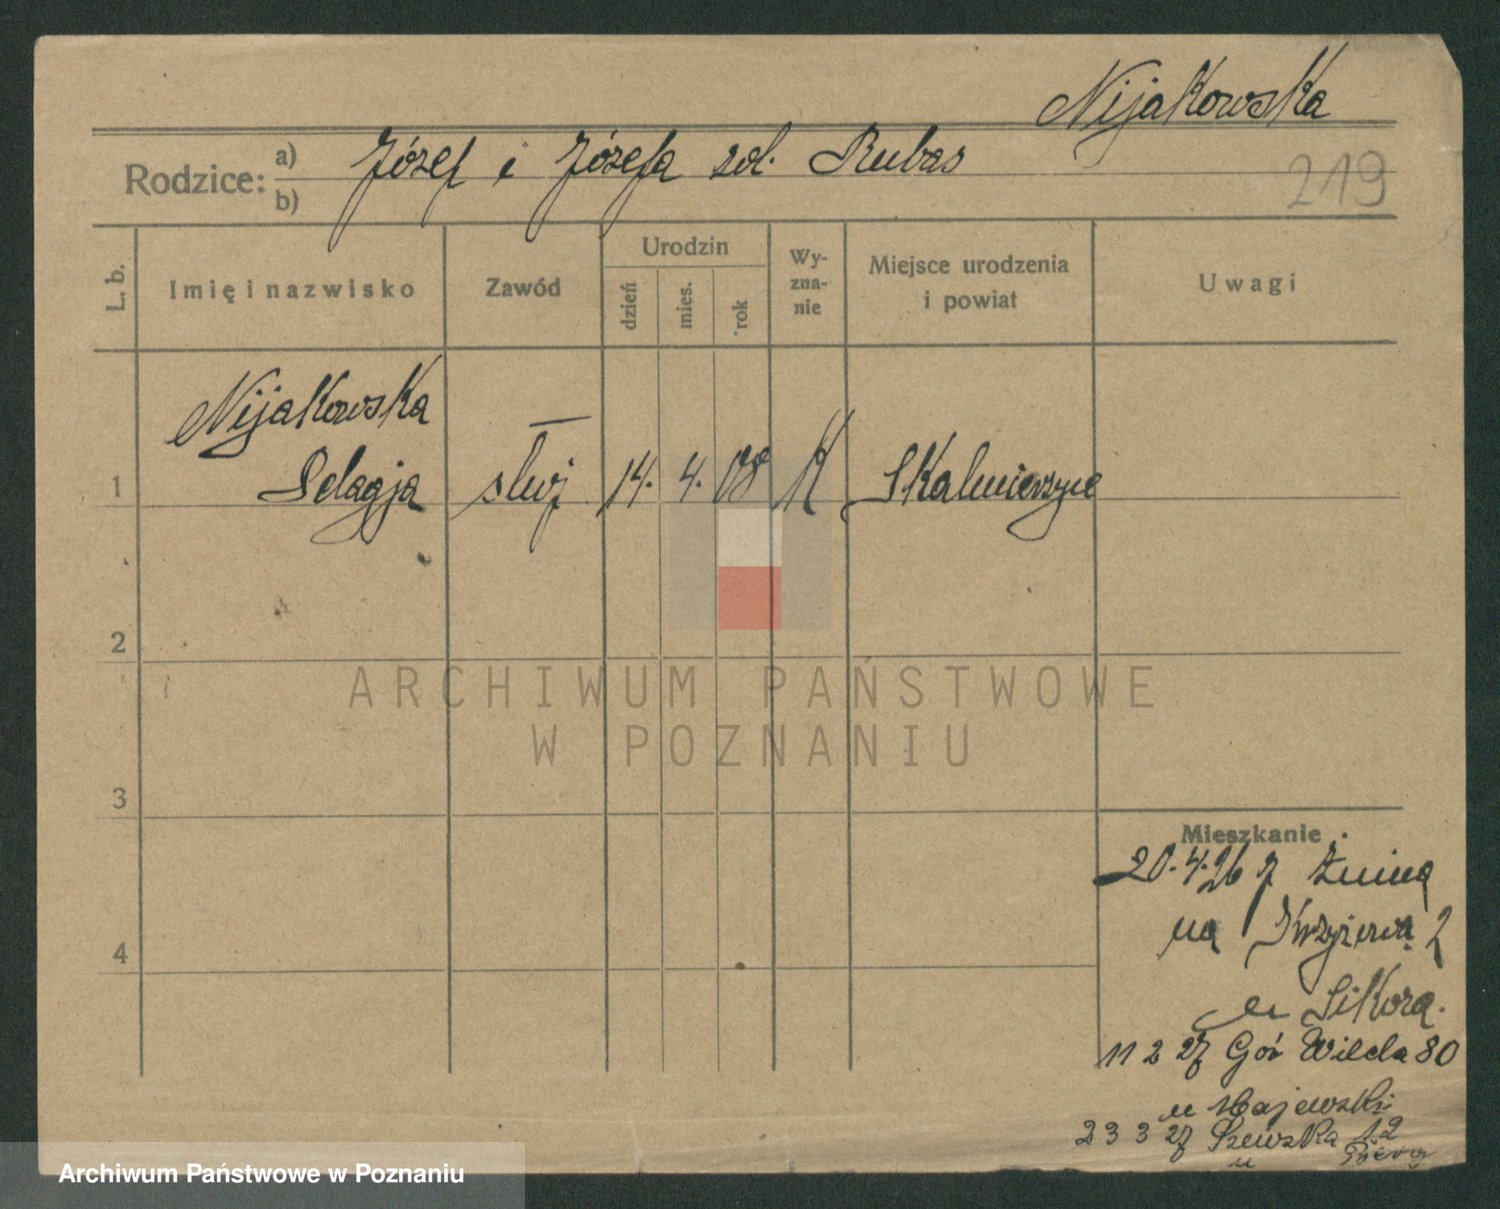 Nijakowska
Rodzice: a) b) Józef i Józefa zd. Rubas
219
L. b.
Imię i nazwisko
Zawód
Urodzin
dzień
mies.
rok
Wy-
zna-
nie
Miejsce urodzenia
i powiat
Uwagi
Nijakowska
1 Pelagja służ 14. 4. 08 K Skalmierzyce
2
3
4
ARCHIWUM PAŃSTWOWE
W POZNANIU
Mieszkanie
20.4.26 z Żnina
na 2
u Sikora.
11 2 27 Gór Wilda 80
u Majewski
23 3 27 Szewska 12
u
Archiwum Państwowe w Poznaniu